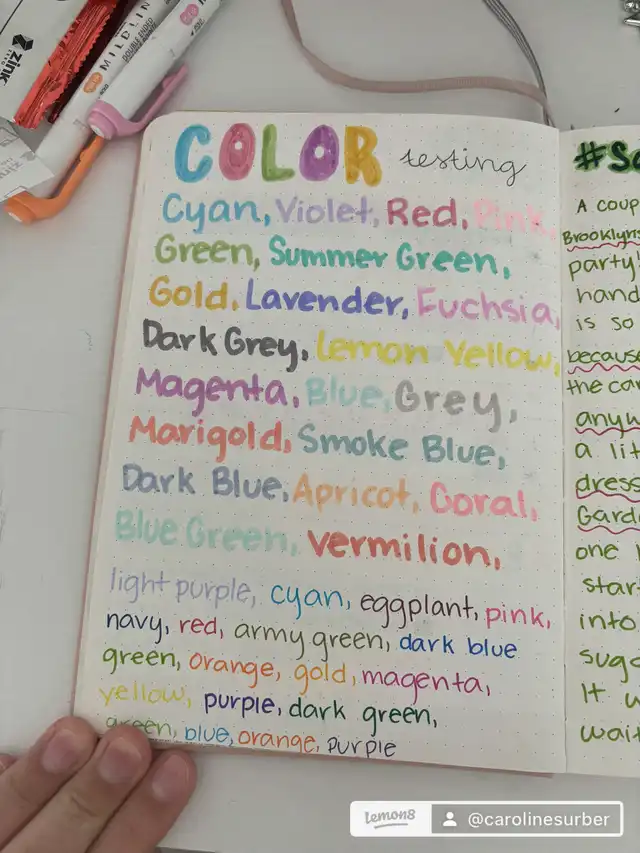 zink
MILDLIN
DOUBLE ENDED
COLOR testing
Cyan, Violet, Red, Pink,
Green, Summer Green,
Gold, Lavender, Fuchsia,
Dark Grey, Lemon Yellow,
Magenta, Blue, Grey,
Marigold, Smoke Blue,
Dark Blue, Apricot, Coral,
Blue Green, Vermilion,
light purple, cyan, eggplant, pink,
navy, red, army green, dark blue
green, orange, gold, magenta,
yellow, purple, dark green,
green, blue, orange, purple
#Sa
A coup
Brooklyns
party!
hand
is so
because
the car
anyw
a lit
dress
Gard
one
start
into
sugg
It w
wait
lemon8
@carolinesurber